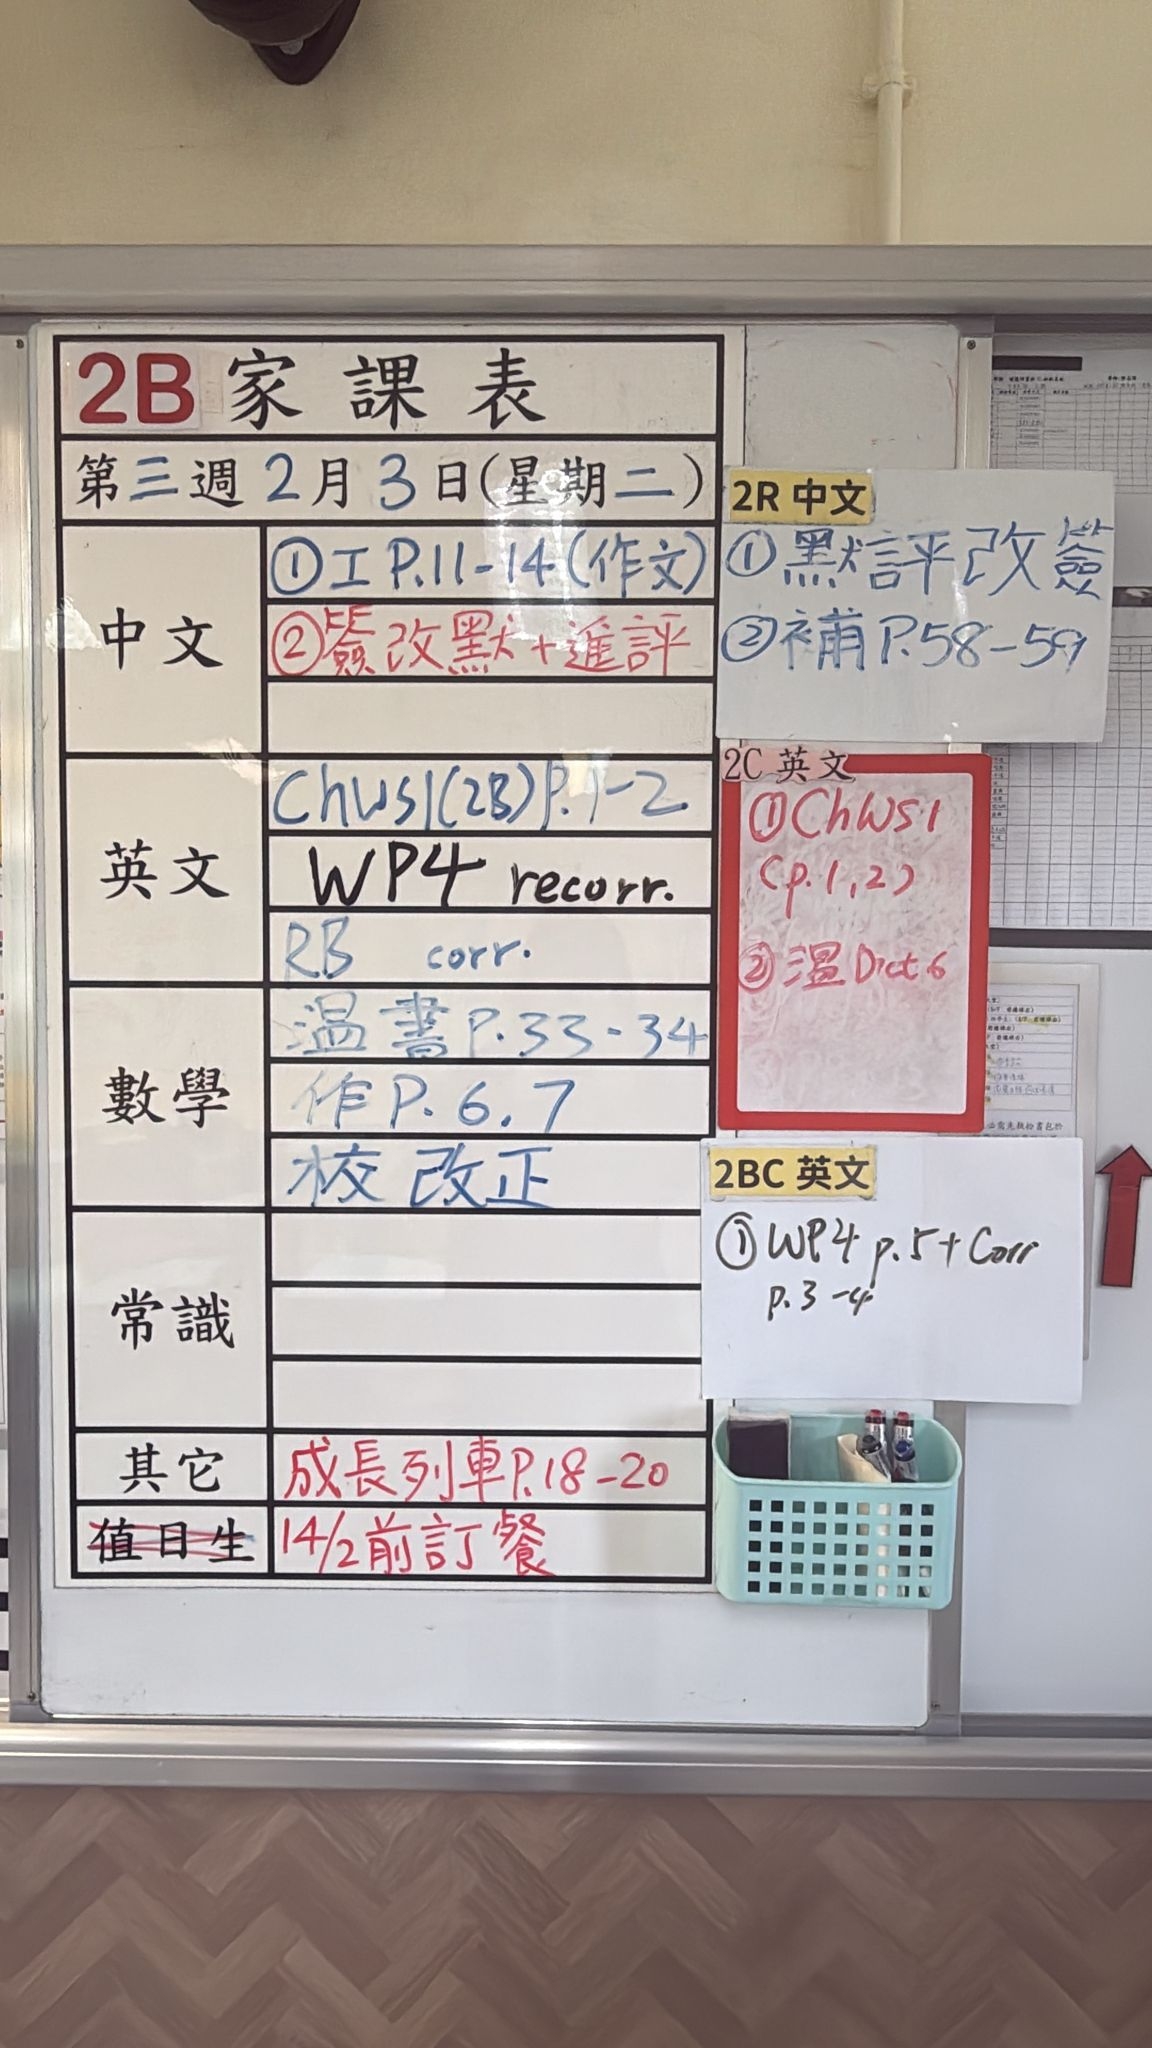 2B 家課表
第三週2月3日(星期二)
中文
①工P.11-14(作文)
②簽改默+進評
英文
ChWS1(2B)P.1-2
WP4 recorr.
RB corr.
數學
温書P.33-34
作P.6,7
校改正
常識
其它
成長列車P.18-20
值日生
14/2前訂餐
2R 中文
①默評改簽
②補P.58-59
2C 英文
①ChWS1
(p.1,2)
②温Dict 6
2BC 英文
①WP4 p.5+Corr
p.3-4